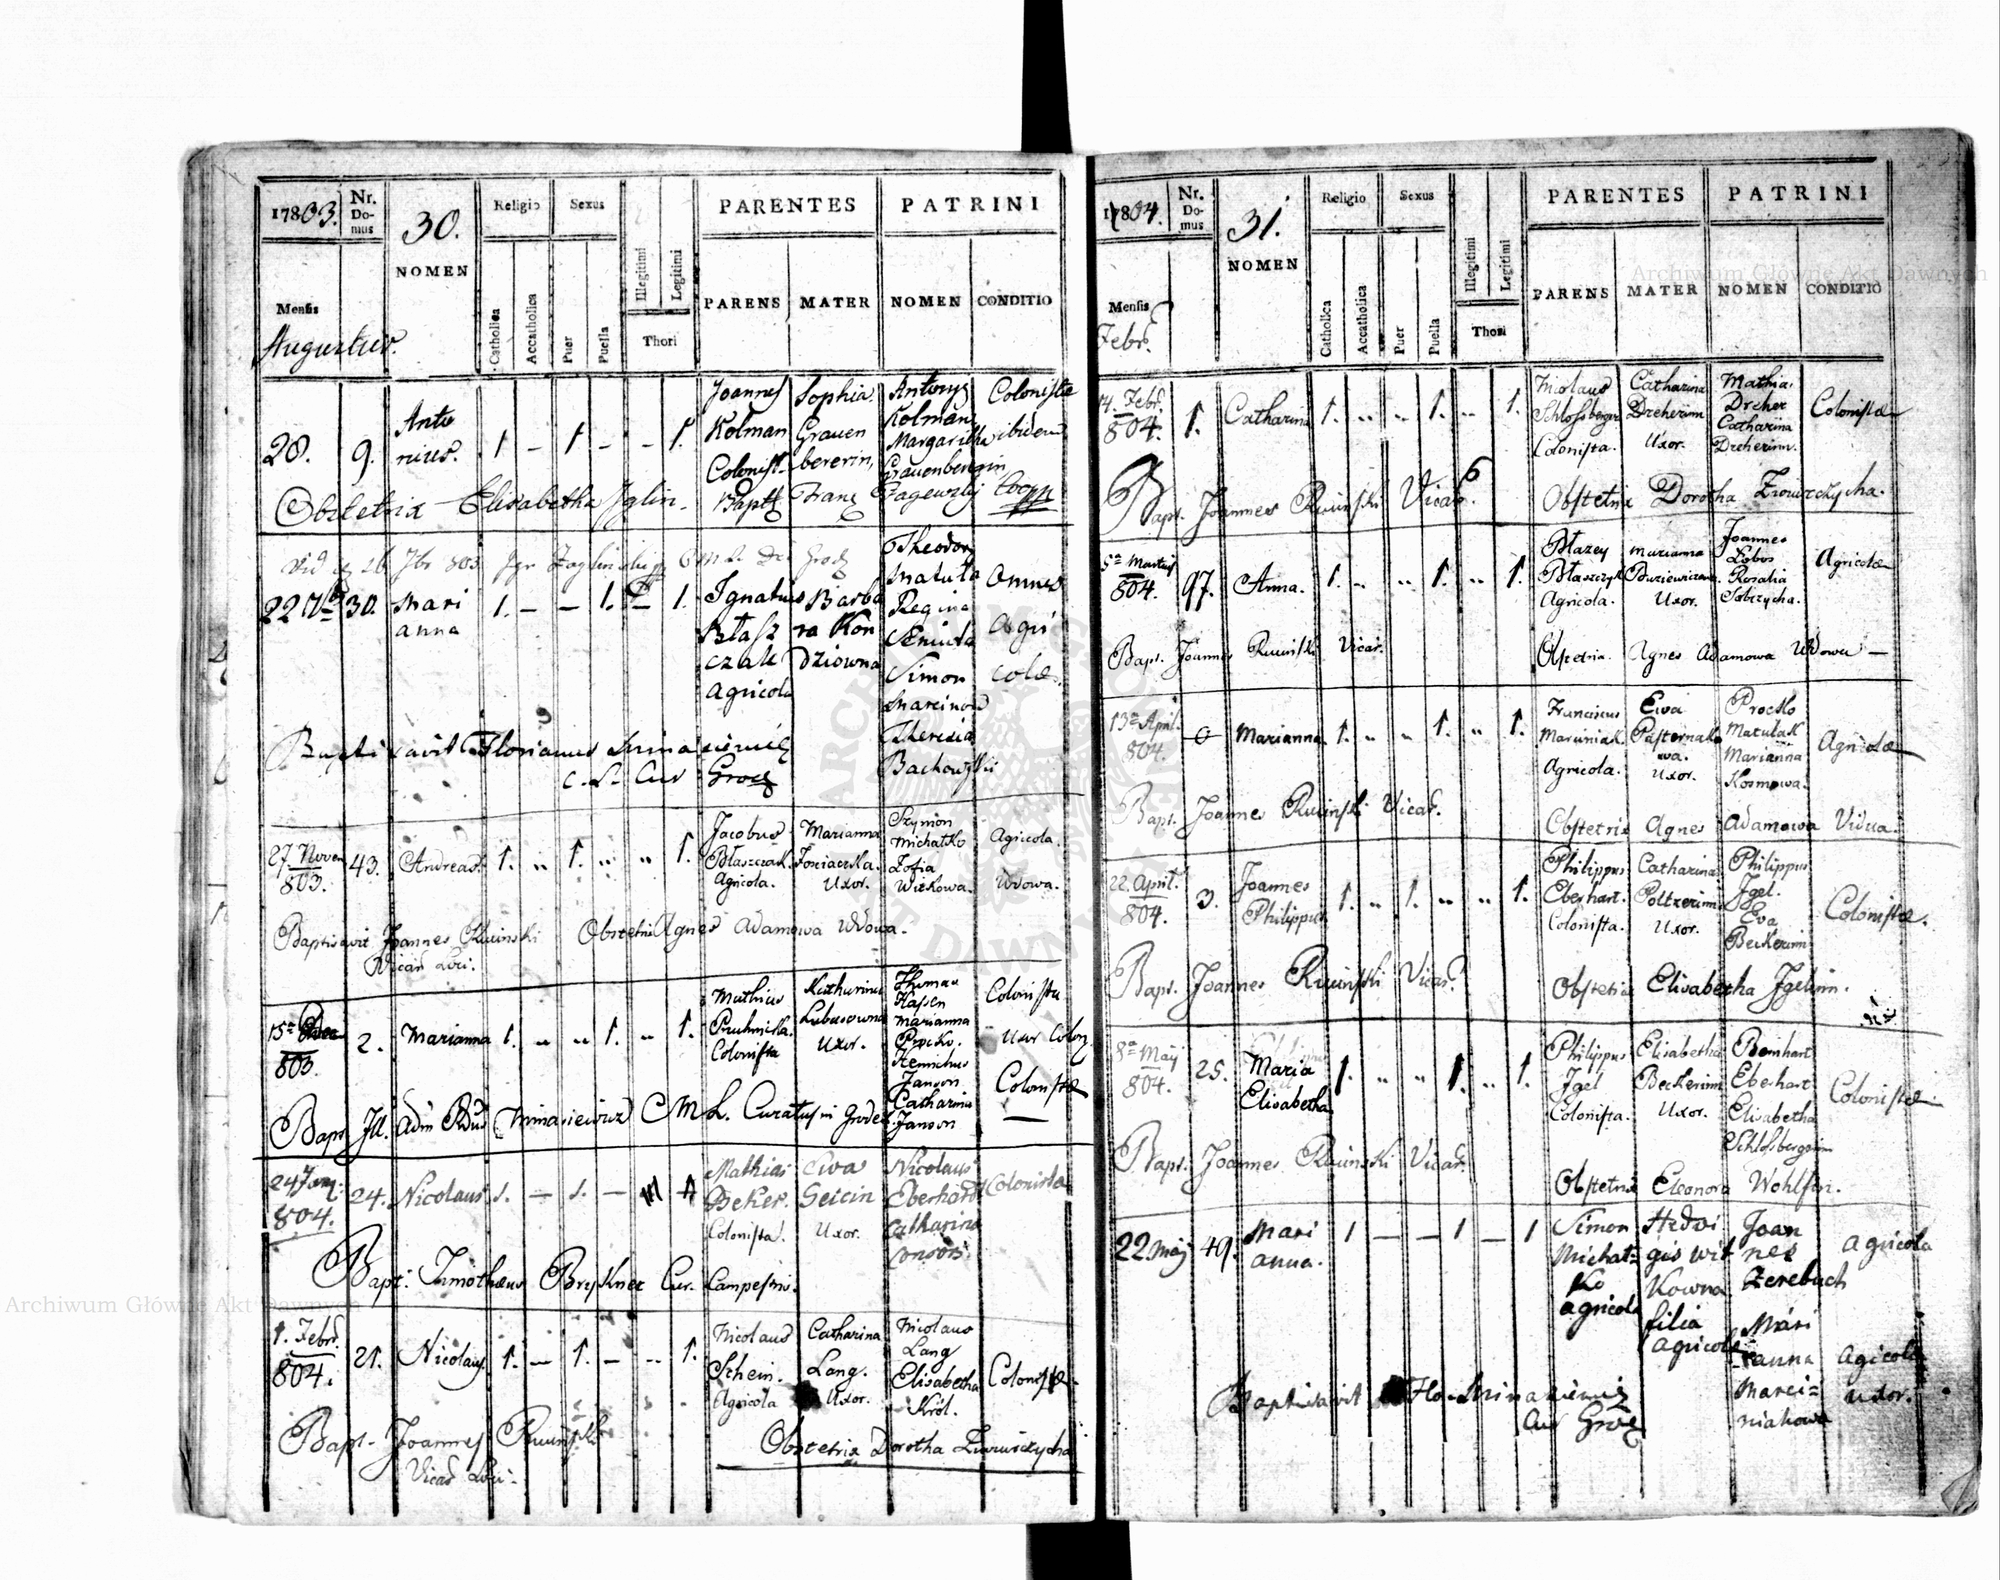 1803. Nr. Domus 30. NOMEN Religio Sexus PARENTES PATRINI
Catholica Accatholica Puer Puella Illegitimi Legitimi Thori PARENS MATER NOMEN CONDITIO
Mensis
Augustus.
28. 9. Antonius. 1 – 1 – – 1.
Joannes Kolman Colonist.
Sophia Grauenbererin,
Antony Kolman Margaretha Grauenbergin
Colonistae ibidem
Obstetrix – Elisabetha Iglin. Bapt Franc Zagewsky
22 30. Marianna 1. – – 1. – 1.
Ignatius Błaszczak agricola
Barbara Kondziowna
Theodor Matuła Regina Simon Marcinow Theresia
omnes agricolae
Baptisavit Florianus Minasiewicz
C. L. Cur Grod
27 Novem 803. 43. Andreas. 1. " 1. " " 1.
Jacobus Błaszczak. Agricola.
Marianna Uxor.
Szymon Michałko Zofia Wickowa.
Agricola. Wdowa.
Baptisavit Joannes Rucinski Obstetrix Agnes Adamowa Wdowa.
Vicar Loci.
15ta 803. 2. Marianna 1. " " 1. " 1.
Mathias Colonista
Katharina Uxor.
Thomas Marianna Popcko. Henrichus Janson Catharina Janson
Colonista Uxor Colon. Colonistae
Bapt. Ill. Adm Rdus Minasiewicz C M L. Curatus in Grodek
24 Janu: 804. 24. Nicolaus 1. – 1. –
Mathias Beker. Colonista.
Ewa Geicin Uxor.
Nicolaus Eberhard Catharina consors.
Colonistae
Bapt: Timotheus Cur. Campestris.
1. Febr. 804. 21. Nicolaus. 1. – 1. – " 1.
Nicolaus Schein. Agricola
Catharina Lang. Uxor.
Nicolaus Lang Elisabetha Król.
Colonistae
Bapt. Joannes Rucinski
Vicar Loci.
Obstetrix Dorotha
1804. Nr. Domus 31. NOMEN Religio Sexus PARENTES PATRINI
Catholica Accatholica Puer Puella Illegitimi Legitimi Thori PARENS MATER NOMEN CONDITIO
Mensis
Febr.
14. Febr. 804. 1. Catharina 1. " " 1. " 1.
Nicolaus Schlossberger Colonista.
Catharina Dreherinn Uxor.
Mathias Dreher Catharina Dreherinn.
Colonistae
Bapt. Joannes Rucinski Vicar. Obstetrix Dorotha
5ta Martij 804. 97. Anna. 1. " " 1. " 1.
Błazey Błaszczyk Agricola.
Marianna Uxor.
Joannes Lobos Rosalia
Agricolae
Bapt. Joannes Rucinski Vicar. Obstetrix. Agnes Adamowa Wdowa –
13ta April. 804. 6 Marianna 1. " " 1. " 1.
Franciscus Marciniak Agricola.
Ewa Pasternakowa. Uxor.
Procko Matulak Marianna Kosmowa.
Agricolae
Bapt. Joannes Rucinski Vicar. Obstetrix Agnes Adamowa Vidua.
22. April. 804. 3. Joannes Philippus 1. " 1. " " 1.
Philippus Eberhart. Colonista.
Catharina Poltzerinn Uxor.
Philippus Igel. Eva Beckerinn
Colonistae.
Bapt. Joannes Rucinski Vicar. Obstetrix Elisabetha Igelinn.
8va Maij 804. 25. Maria Elisabetha 1. " " 1. " 1.
Philippus Igel Colonista.
Elisabetha Beckerinn Uxor.
Bernhart Eberhart Elisabetha Schlosbergerinn
Colonistae.
Bapt. Joannes Rucinski Vicar.
Obstetrix Eleonora Wohlfin.
22 Maij 49. Marianna. 1 – – 1 – 1
Simon Michałko agricola
Hedwigis Witkowna filia agricolae
Joannes Zerebach Marianna Marciniakowa
agricola agricolae uxor.
Baptisavit Flo. Minasiewicz
Cur Grod
Archiwum Główne Akt Dawnych
Archiwum Główne Akt Dawnych